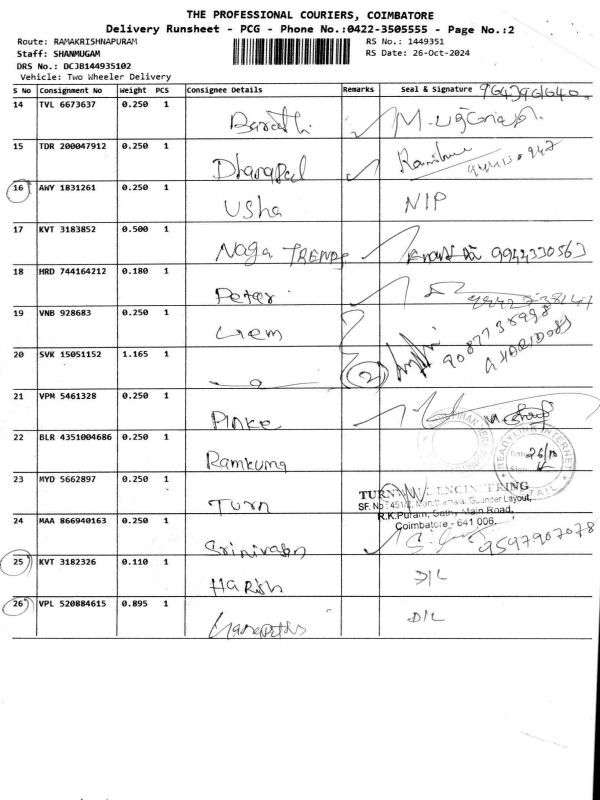 THE PROFESSIONAL COURIERS, COIMBATORE
Delivery Runsheet - PCG - Phone No.:0422-3505555 - Page No.:2
Route: RAMAKRISHNAPURAM
RS No.: 1449351
Staff: SHANMUGAM
RS Date: 26-Oct-2024
DRS No.: DCJB144935102
Vehicle: Two Wheeler Delivery
S No Consignment No Weight PCS Consignee Details Remarks Seal & Signature
14 TVL 6673637 0.250 1
Barathi
15 TDR 200047912 0.250 1
Dhanapal
16 AWY 1831261 0.250 1
Usha NIP
17 KVT 3183852 0.500 1
Naga TRENDS 9944330563
18 HRD 744164212 0.180 1
Peter
19 VNB 928683 0.250 1
20 SVK 15051152 1.165 1
2
21 VPM 5461328 0.250 1
Pinke
22 BLR 4351004686 0.250 1
Ramkuma
READYLINK INTERNET
Date 26/10
23 MYD 5662897 0.250 1
Turn
TURN ENGINEERING
SF.No: 451/2, Gounder Layout,
R.K.Puram, Sathy Main Road,
Coimbatore - 641 006.
24 MAA 866940163 0.250 1
Srinivasan 9597907078
25 KVT 3182326 0.110 1
Harish D/L
26 VPL 520884615 0.895 1
D/L